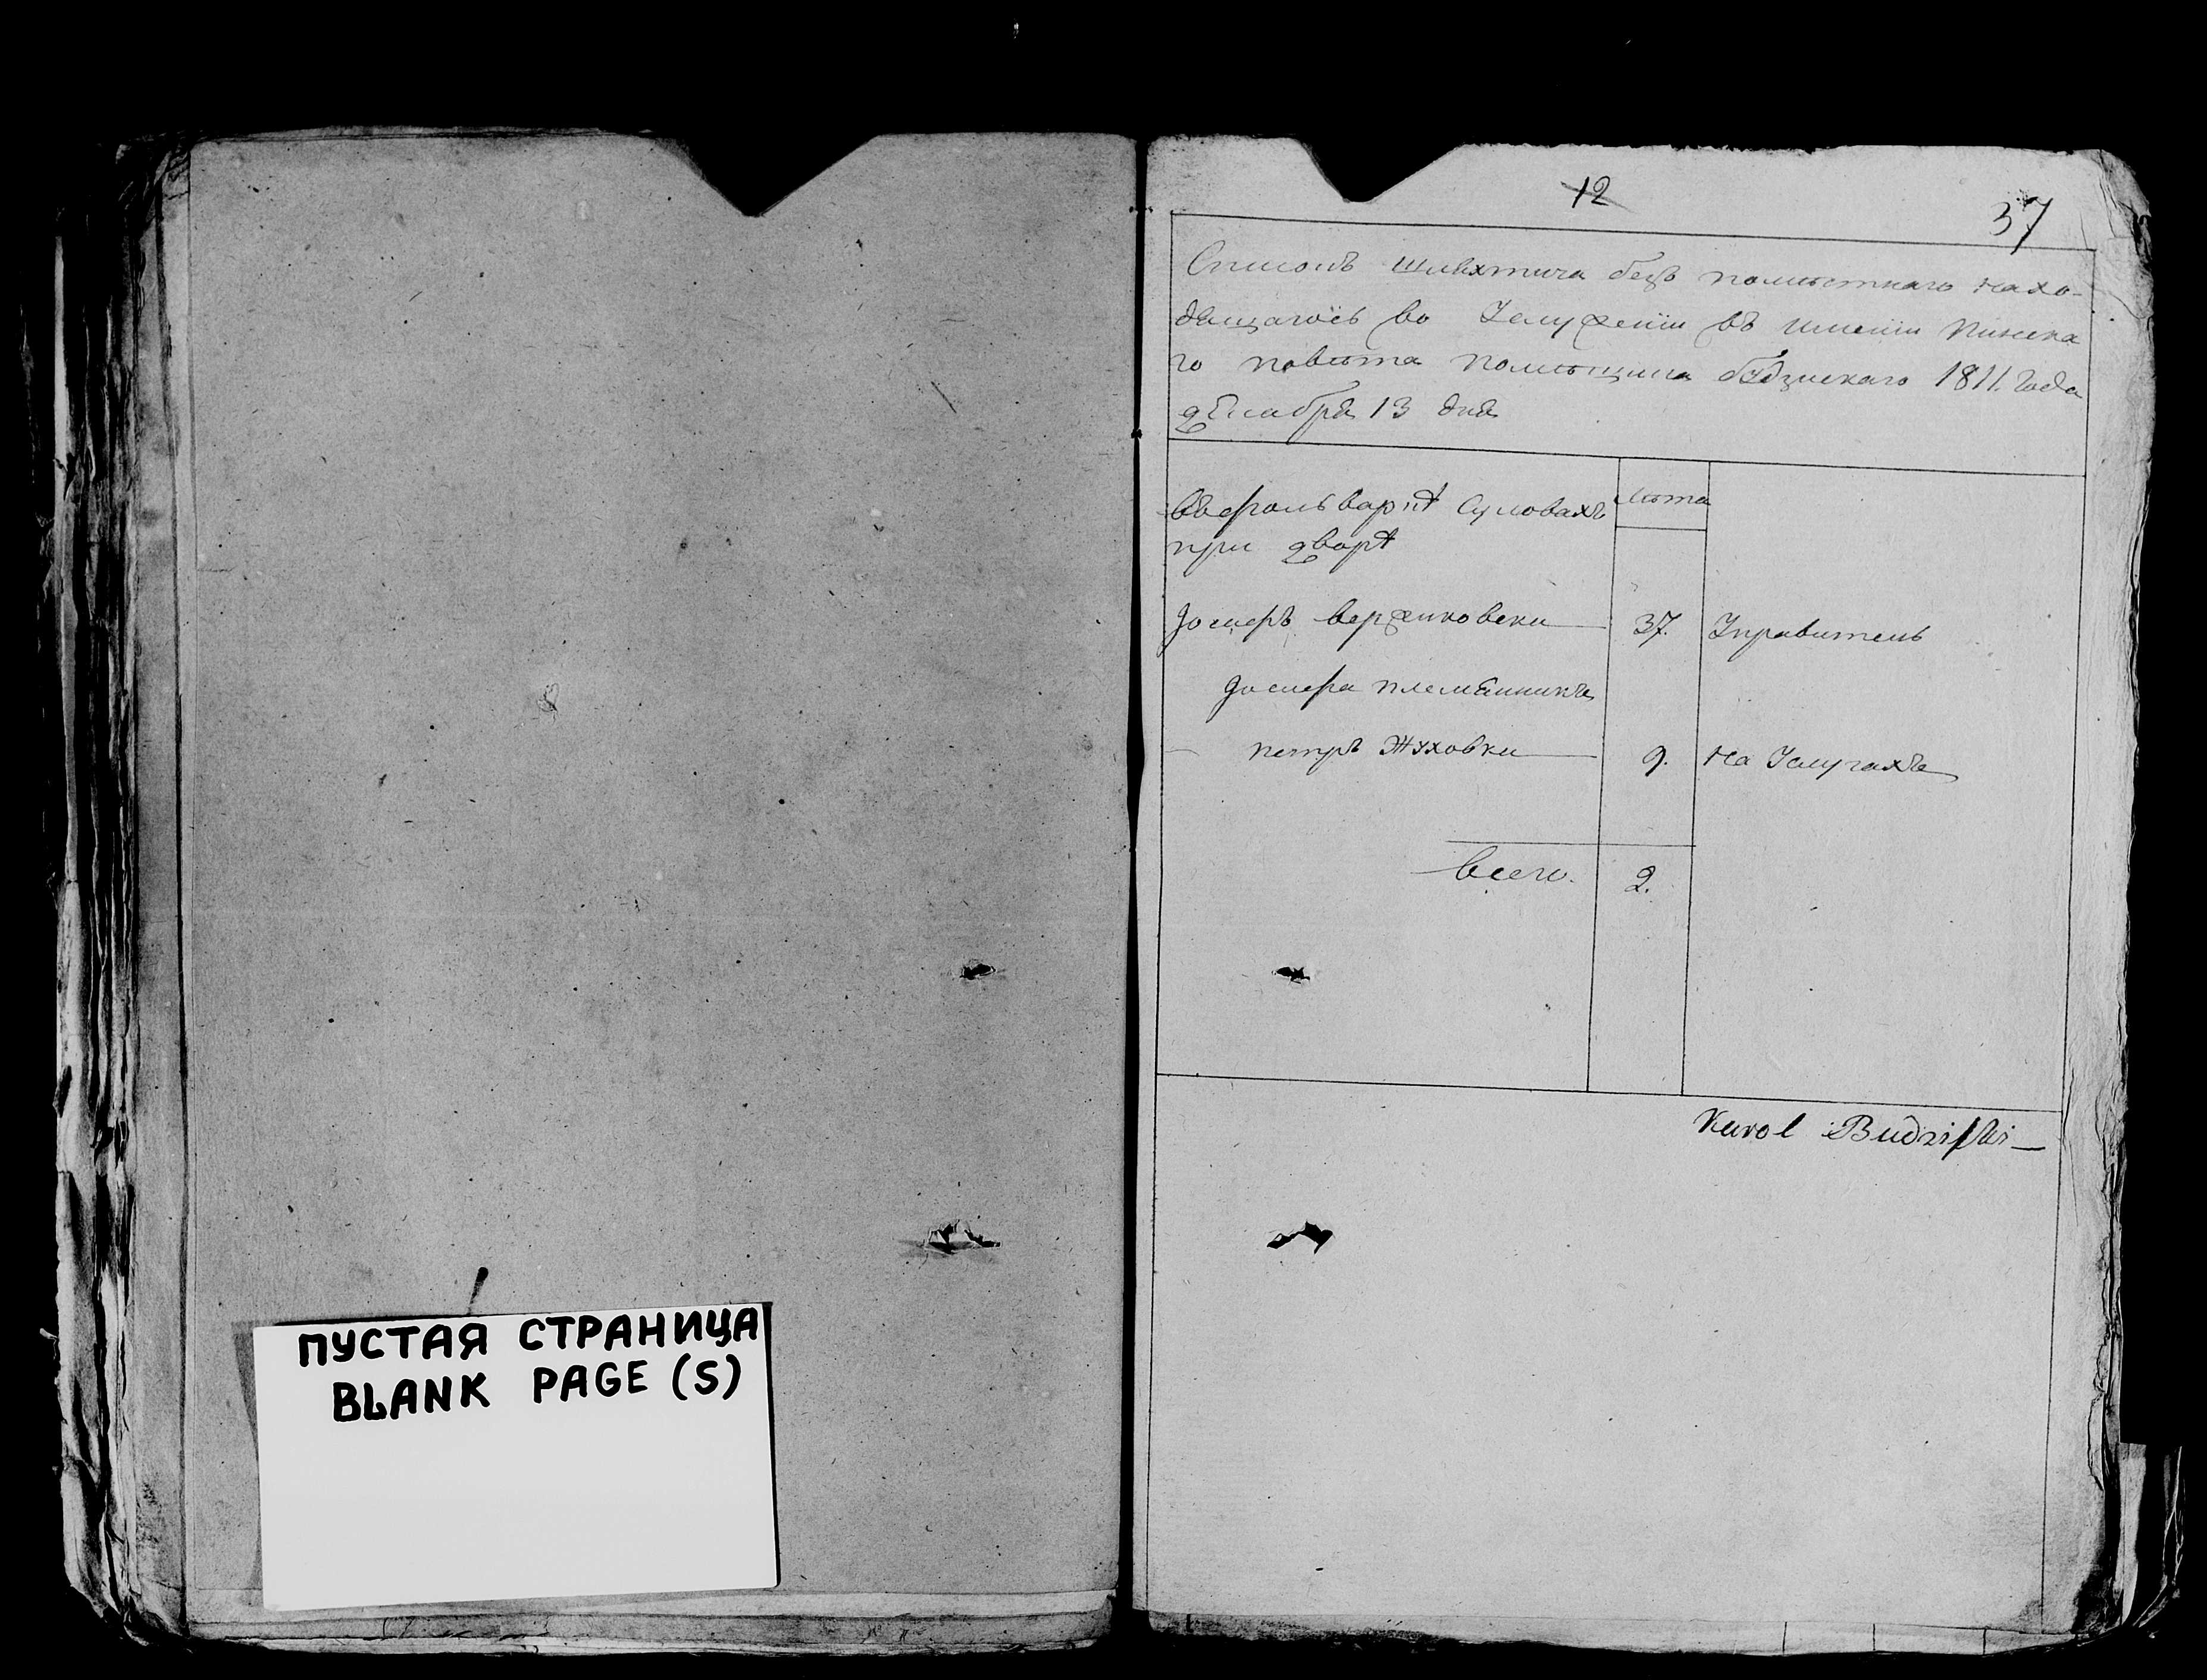 ПУСТАЯ СТРАНИЦА
BLANK PAGE (S)
12
37
Списокъ Шляхтича безъ помѣстнаго нахо-
дящагось во Услуженіи въ имении Пинска
го повѣта помѣщика будзискаго 1811. Года
декабря 13 дня
Въ фольваркѣ Суловахъ
при дворѣ
лѣта
Іосифъ вержиковски 37. Управитель
Іосифа племянникъ
петръ Жуховки 9. На Услугахъ
всего. 2.
Karol Budziſki